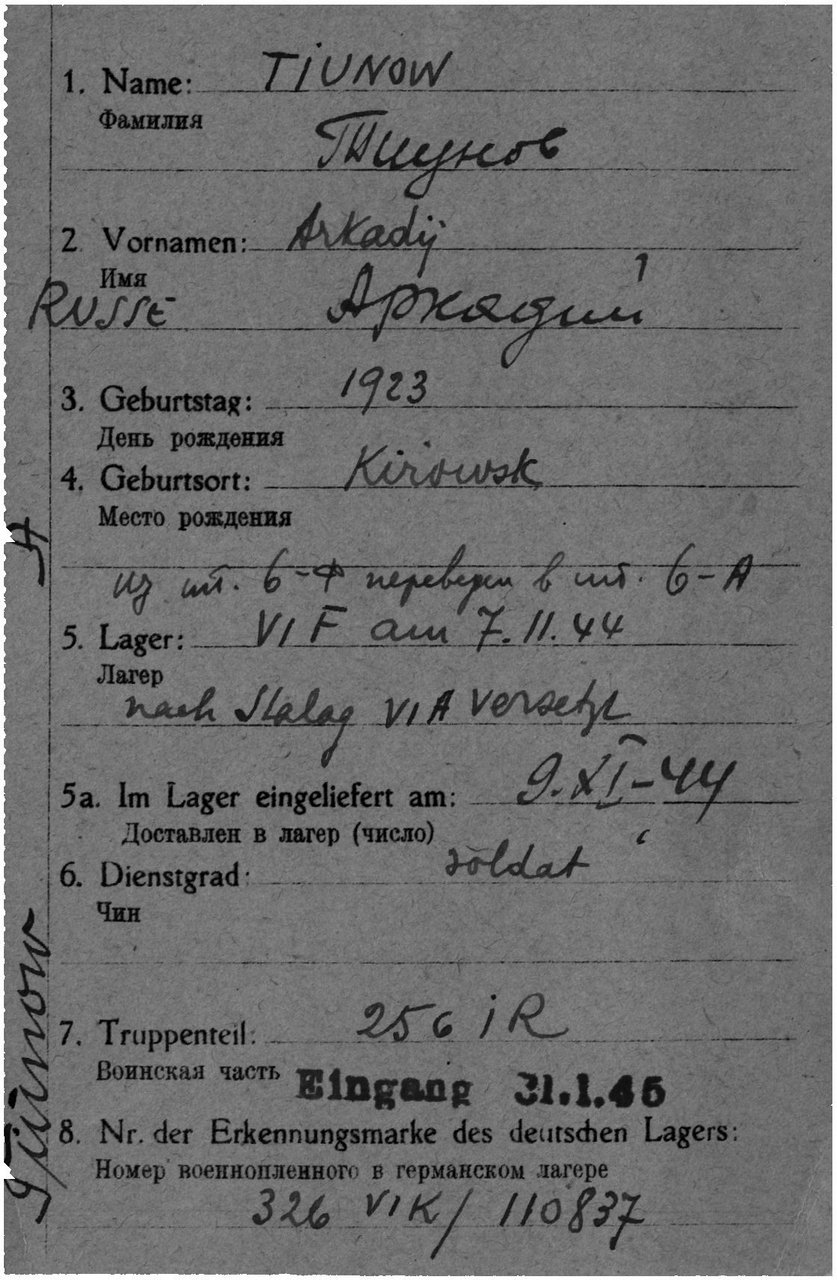 1. Name: TIUNOW
Фамилия
Тиунов
2. Vornamen: Arkadij
Имя
RUSSE Аркадий
3. Geburtstag: 1923
День рождения
4. Geburtsort: Kirowsk
Место рождения
из шт. 6-Ф переведен в шт. 6-А
5. Lager: VI F am 7.11.44
Лагер
nach Stalag VI A versetzt
5a. Im Lager eingeliefert am: 9.XI-44
Доставлен в лагер (число)
6. Dienstgrad: soldat
Чин
7. Truppenteil: 256 IR
Воинская часть
Eingang 31.1.45
8. Nr. der Erkennungsmarke des deutschen Lagers:
Номер военнопленного в германском лагере
326 VI K/ 110837
Tiunow